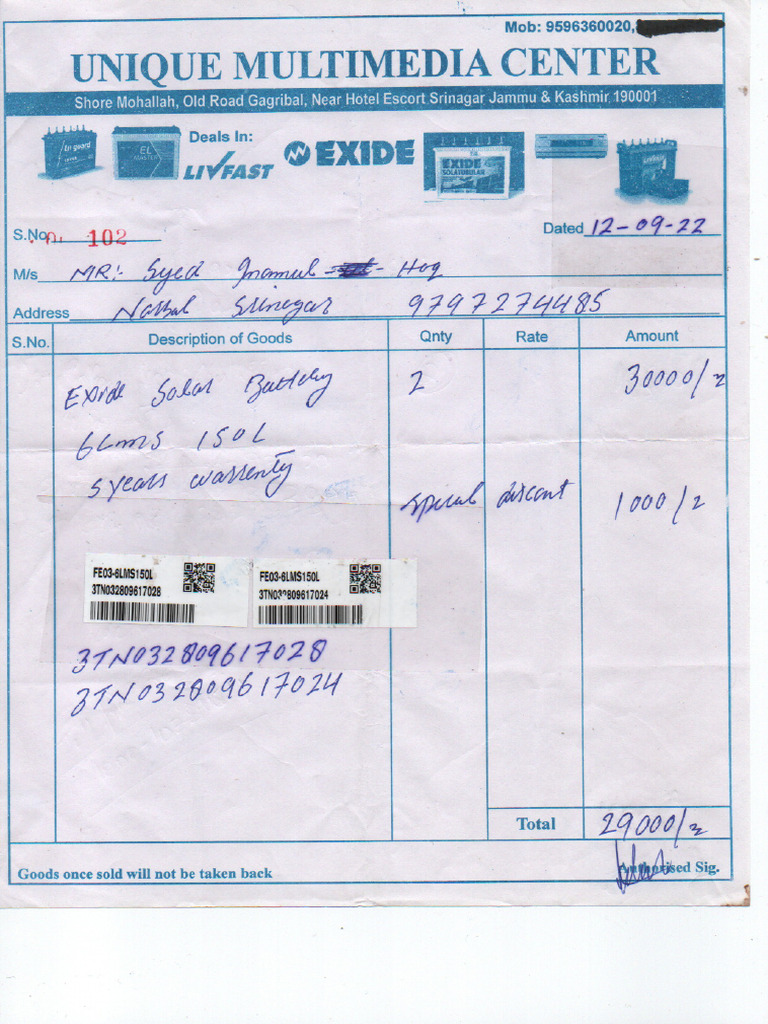 Mob: 9596360020,
UNIQUE MULTIMEDIA CENTER
Shore Mohallah, Old Road Gagribal, Near Hotel Escort Srinagar Jammu & Kashmir 190001
Deals In:
LIVFAST
EXIDE
EXIDE
SOLATUBULAR
EL
MASTER
S.No. 102
Dated 12-09-22
M/s MR:- Syed Inamul Hoq
Address Narbal Srinagar 9797274485
S.No. Description of Goods Qnty Rate Amount
Exide Solar Battery 2 30000/=
6LMS 150L
5 years warrenty
Special discont 1000/=
FE03-6LMS150L
3TN032809617028
FE03-6LMS150L
3TN032809617024
3TN032809617028
3TN032809617024
Total 29000/=
Authorised Sig.
Goods once sold will not be taken back